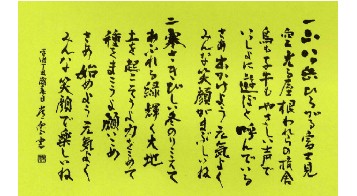 ひろがる富士見
光る屋根われらの
鳥も子牛もやさしい声で
いっしょに遊ぼと呼んでいる
さあ出かけよう元気よく
みんな笑顔がまぶしいね
二 寒さきびしい冬のりこえて
あふれる緑輝く大地
土を起こそうよ力をこめて
種をまこうよ願いこめ
さあ始めよう元気よく
みんな笑顔で楽しいね